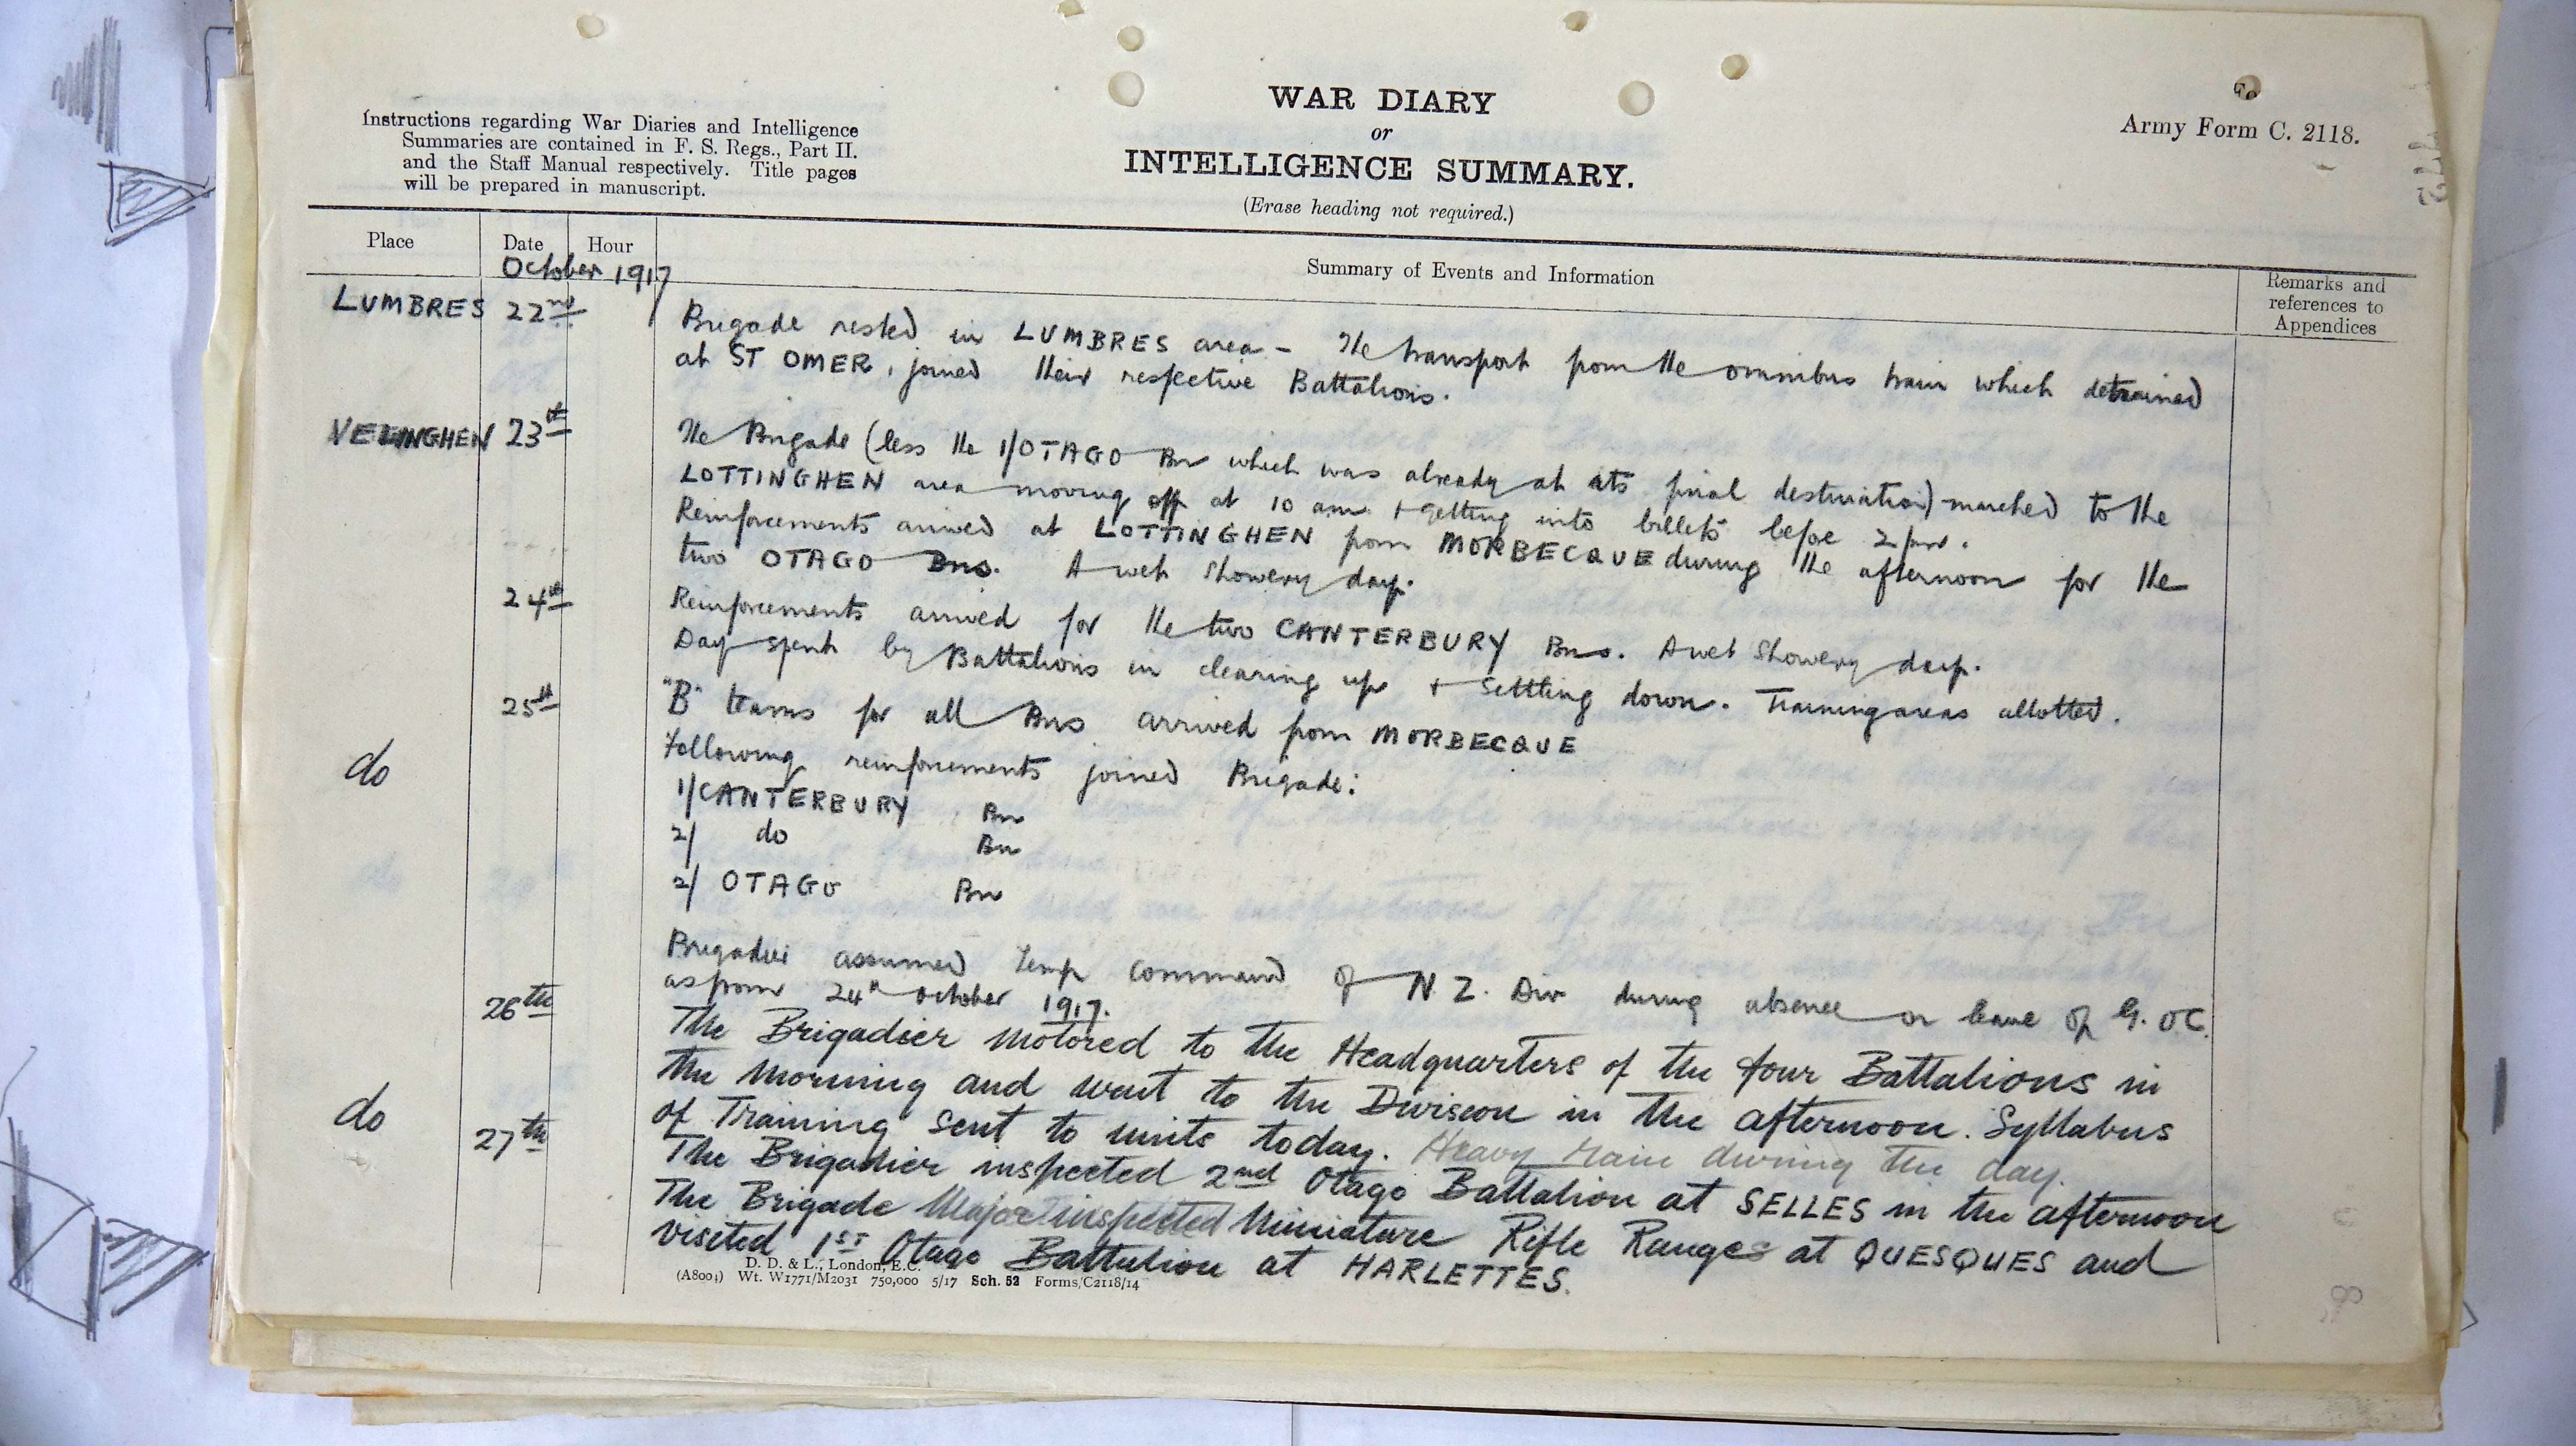 Instructions regarding War Diaries and Intelligence
Summaries are contained in F. S. Regs., Part II.
and the Staff Manual respectively. Title pages
will be prepared in manuscript.
WAR DIARY
or
INTELLIGENCE SUMMARY.
(Erase heading not required.)
Army Form C. 2118.
Place
Date
Hour
October 1917
Summary of Events and Information
Remarks and
references to
Appendices
LUMBRES 22nd
Brigade rested in LUMBRES area - The transport from the omnibus train which detrained
at ST OMER, joined their respective Battalions.
VELINGHEN 23rd
The Brigade (less the 1/OTAGO Bn which was already at its final destination) marched to the
LOTTINGHEN area moving off at 10 am + getting into billets before 2 pm.
Reinforcements arrived at LOTTINGHEN from MORBECQUE during the afternoon for the
two OTAGO Bns. A wet showery day.
24th
Reinforcements arrived for the two CANTERBURY Bns. A wet showery day.
Day spent by Battalions in clearing up + settling down. Training areas allotted.
25th
"B" teams for all Bns arrived from MORBECQUE
do
Following reinforcements joined Brigade:
1/CANTERBURY Bn
2/ do Bn
2/ OTAGO Bn
Brigadier assumed temp command of N.Z. Div during absence on leave of G.O.C.
as from 24th October 1917.
26th
The Brigadier motored to the Headquarters of the four Battalions in
the morning and went to the Division in the afternoon. Syllabus
of Training sent to units today. Heavy rain during the day.
do
27th
The Brigadier inspected 2nd Otago Battalion at SELLES in the afternoon
The Brigade Major inspected Miniature Rifle Ranges at QUESQUES and
visited 1ST Otago Battalion at HARLETTES.
D. D. & L., London, E.C.
(A8004) Wt. W1771/M2031 750,000 5/17 Sch. 52 Forms/C2118/14